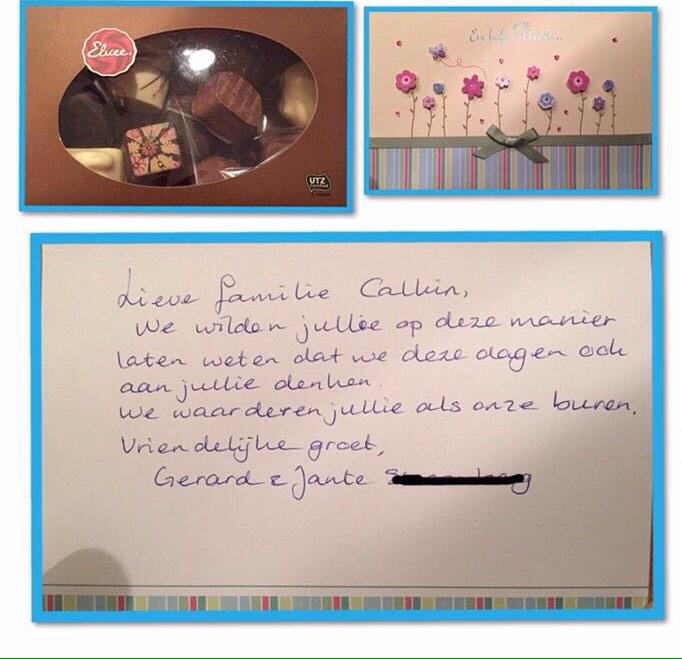 Elvee.
UTZ
Certified
Lieve familie Calkin,
We wilden jullie op deze manier
laten weten dat we deze dagen ook
aan jullie denken.
We waarderen jullie als onze buren.
Vriendelijke groet,
Gerard & Jante